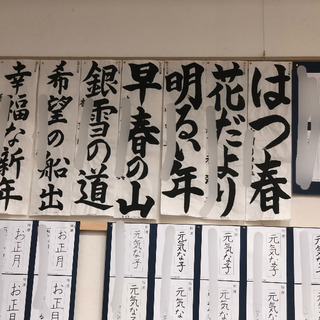 はつ春
花だより
明るい年
早春の山
銀雪の道
希望の船出
幸福な新年
元気な子
元気な子
元気な子
元気な子
お正月
お正月
元気な子
元気な子
元気な子
元気な子
お正月
お正月